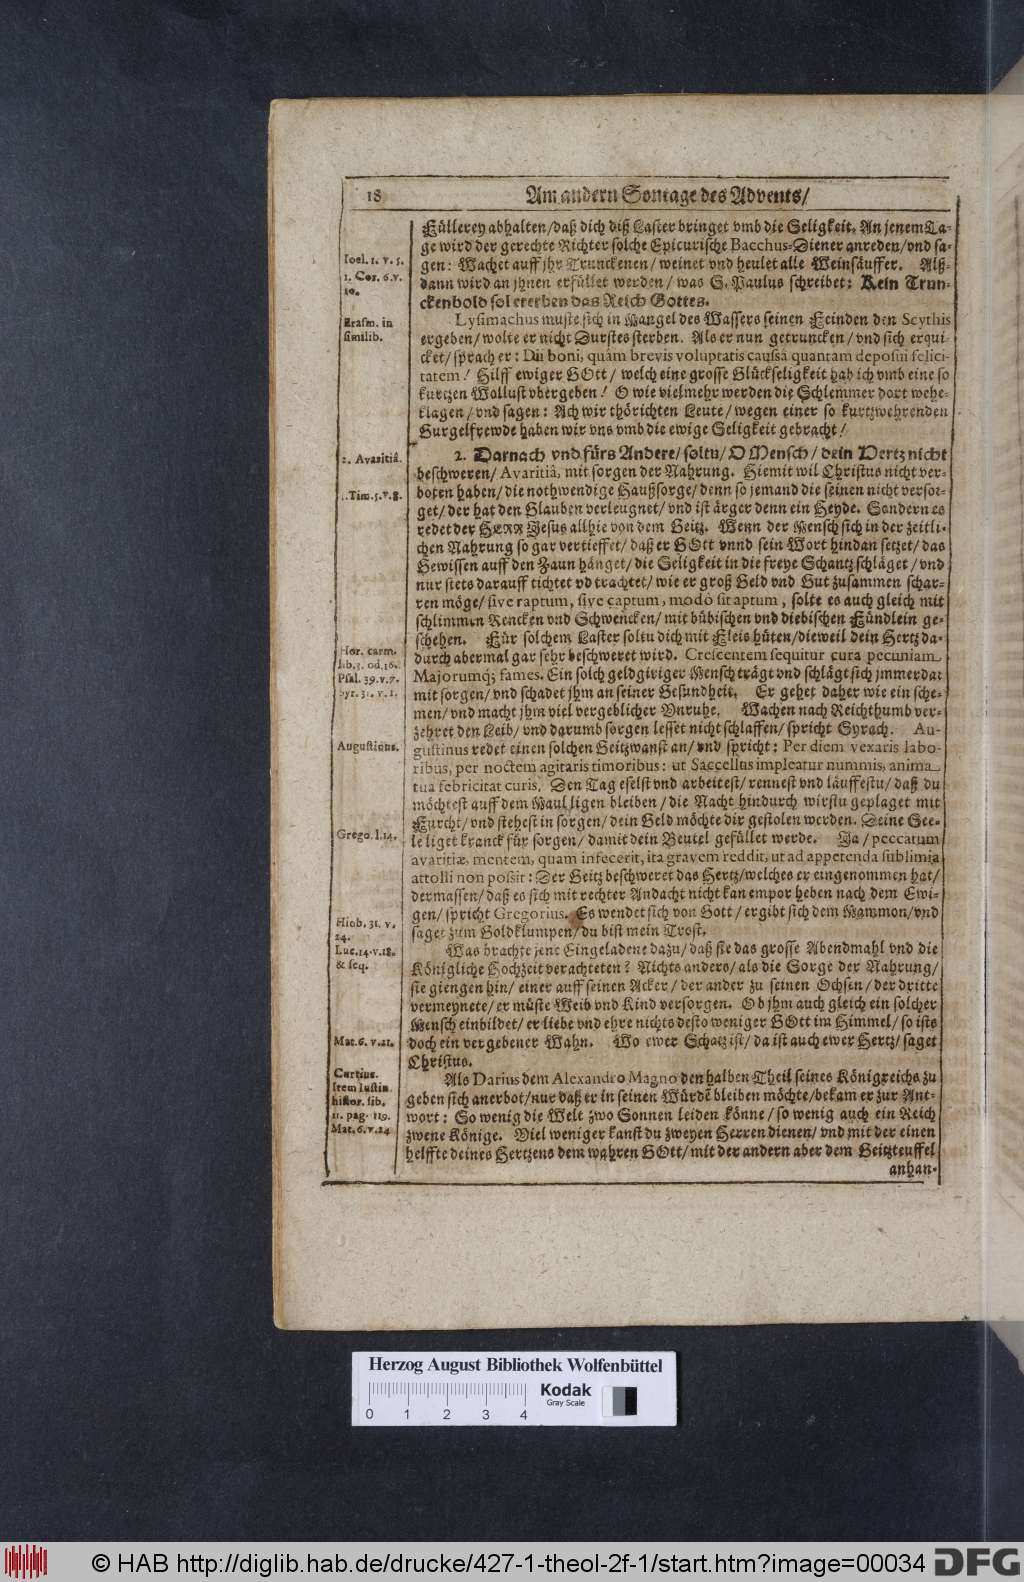 18 Am andern Sontage des Advents/
Füllerey abhalten/ daß dich diß Laster bringet vmb die Seligkeit. An jenem Ta-
ge wird der gerechte Richter solche Epicurische Bacchus-Diener anreden/ vnd sa-
Ioel. 1. v. 5.
gen: Wachet auff jhr Trunckenen/ weinet vnd heulet alle Weinsäuffer. Alß-
1. Cor. 6. v.
dann wird an jhnen erfüllet werden/ was S. Paulus schreibet: Kein Trun-
10.
ckenbold sol ererben das Reich Gottes.
Erasm. in
Lysimachus muste sich in Mangel des Wassers seinen Feinden den Scythis
similib.
ergeben/ wolte er nicht Durstes sterben. Als er nun getruncken/ vnd sich erqui-
cket/ sprach er: Dii boni, quàm brevis voluptatis caussâ quantam deposui felici-
tatem! Hilff ewiger GOtt/ welch eine grosse Glückseligkeit hab ich vmb eine so
kurtzen Wollust vbergeben! O wie vielmehr werden die Schlemmer dort wehe-
klagen/ vnd sagen: Ach wir thörichten Leute/ wegen einer so kurtzwehrenden
Gurgelfrewde haben wir vns vmb die ewige Seligkeit gebracht!
2. Avaritiâ.
2. Darnach vnd fürs Andere/ soltu/ O Mensch/ dein Hertz nicht
beschweren/ Avaritiâ, mit sorgen der Nahrung. Hiemit wil Christus nicht ver-
1. Tim. 5. v. 8.
boten haben/ die nothwendige Haußsorge/ denn so jemand die seinen nicht versor-
get/ der hat den Glauben verleugnet/ vnd ist ärger denn ein Heyde. Sondern es
redet der HERR Jesus allhie von dem Geitz. Wenn der Mensch sich in der zeitli-
chen Nahrung so gar vertieffet/ daß er GOtt vnnd sein Wort hindan setzet/ das
Gewissen auff den Zaun hänget/ die Seligkeit in die freye Schantz schläget/ vnd
nur stets darauff tichtet vd trachtet/ wie er groß Geld vnd Gut zusammen schar-
ren möge/ sive raptum, sive captum, modò sit aptum, solte es auch gleich mit
schlimmen Rencken vnd Schwencken/ mit bübischen vnd diebischen Fündlein ge-
schehen. Für solchem Laster soltu dich mit Fleis hüten/ dieweil dein Hertz da-
Hor. carm.
durch abermal gar sehr beschweret wird. Crescentem sequitur cura pecuniam
lib. 3. od. 16.
Majorumq; fames. Ein solch geldgiriger Mensch trägt vnd schlägt sich jmmerdar
Psal. 39. v. 7.
mit sorgen/ vnd schadet jhm an seiner Gesundheit. Er gehet daher wie ein sche-
Syr. 31. v. 1.
men/ vnd macht jhm viel vergeblicher Vnruhe. Wachen nach Reichthumb ver-
zehret den Leib/ vnd darumb sorgen lesset nicht schlaffen/ spricht Syrach. Au-
Augustinus.
gustinus redet einen solchen Geitzwanst an/ vnd spricht: Per diem vexaris labo-
ribus, per noctem agitaris timoribus: ut Saccellus impleatur nummis, anima
tua febricitat curis. Den Tag eselst vnd arbeitest/ rennest vnd läuffestu/ daß du
möchtest auff dem Maul ligen bleiben/ die Nacht hindurch wirstu geplaget mit
Furcht/ vnd stehest in sorgen/ dein Geld möchte dir gestolen werden. Deine See-
Grego. l. 14.
le liget kranck für sorgen/ damit dein Beutel gefüllet werde. Ja/ peccatum
avaritiæ, mentem, quam infecerit, ita gravem reddit, ut ad appetenda sublimia
attolli non possit: Der Geitz beschweret das Hertz/ welches er eingenommen hat/
dermassen/ daß es sich mit rechter Andacht nicht kan empor heben nach dem Ewi-
Hiob. 31. v.
gen/ spricht Gregorius. Es wendet sich von Gott/ ergibt sich dem Mammon/ vnd
24.
saget zum Goldklumpen/ du bist mein Trost.
Luc. 14. v. 18.
Was brachte jene Eingeladene dazu/ daß sie das grosse Abendmahl vnd die
& seq.
Königliche Hochzeit verachteten? Nichts anders/ als die Sorge der Nahrung/
sie giengen hin/ einer auff seinen Acker/ der ander zu seinen Ochsen/ der dritte
vermeynete/ er müste Weib vnd Kind versorgen. Ob jhm auch gleich ein solcher
Mensch einbildet/ er liebe vnd ehre nichts desto weniger GOtt im Himmel/ so ists
Mat. 6. v. 21.
doch ein vergebener Wahn. Wo ewer Schatz ist/ da ist auch ewer Hertz/ saget
Christus.
Curtius.
Als Darius dem Alexandro Magno den halben Theil seines Königreichs zu
Item Iustin.
geben sich anerbot/ nur daß er in seinen Würdē bleiben möchte/ bekam er zur Ant-
histor. lib.
wort: So wenig die Welt zwo Sonnen leiden könne/ so wenig auch ein Reich
11. pag. 119.
zwene Könige. Viel weniger kanst du zweyen Herren dienen/ vnd mit der einen
Mat. 6. v. 24
helffte deines Hertzens dem wahren GOtt/ mit der andern aber dem Geitzteuffel
anhan-
Herzog August Bibliothek Wolfenbüttel
Kodak
Gray Scale
0 1 2 3 4
© HAB http://diglib.hab.de/drucke/427-1-theol-2f-1/start.htm?image=00034
DFG